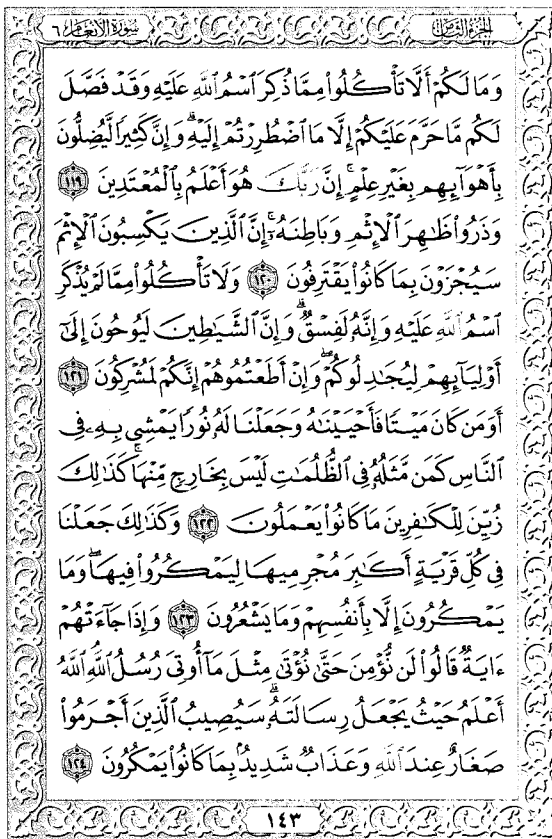 الجزء الثامن سورة الأنعام ٦
وَمَا لَكُمْ أَلَّا تَأْكُلُوا۟ مِمَّا ذُكِرَ ٱسْمُ ٱللَّهِ عَلَيْهِ وَقَدْ فَصَّلَ
لَكُم مَّا حَرَّمَ عَلَيْكُمْ إِلَّا مَا ٱضْطُرِرْتُمْ إِلَيْهِ ۗ وَإِنَّ كَثِيرًا لَّيُضِلُّونَ
بِأَهْوَآئِهِم بِغَيْرِ عِلْمٍ ۗ إِنَّ رَبَّكَ هُوَ أَعْلَمُ بِٱلْمُعْتَدِينَ ١١٩
وَذَرُوا۟ ظَـٰهِرَ ٱلْإِثْمِ وَبَاطِنَهُۥٓ ۚ إِنَّ ٱلَّذِينَ يَكْسِبُونَ ٱلْإِثْمَ
سَيُجْزَوْنَ بِمَا كَانُوا۟ يَقْتَرِفُونَ ١٢٠ وَلَا تَأْكُلُوا۟ مِمَّا لَمْ يُذْكَرِ
ٱسْمُ ٱللَّهِ عَلَيْهِ وَإِنَّهُۥ لَفِسْقٌ ۗ وَإِنَّ ٱلشَّيَـٰطِينَ لَيُوحُونَ إِلَىٰٓ
أَوْلِيَآئِهِمْ لِيُجَـٰدِلُوكُمْ ۖ وَإِنْ أَطَعْتُمُوهُمْ إِنَّكُمْ لَمُشْرِكُونَ ١٢١
أَوَمَن كَانَ مَيْتًا فَأَحْيَيْنَـٰهُ وَجَعَلْنَا لَهُۥ نُورًا يَمْشِى بِهِۦ فِى
ٱلنَّاسِ كَمَن مَّثَلُهُۥ فِى ٱلظُّلُمَـٰتِ لَيْسَ بِخَارِجٍ مِّنْهَا ۚ كَذَٰلِكَ
زُيِّنَ لِلْكَـٰفِرِينَ مَا كَانُوا۟ يَعْمَلُونَ ١٢٢ وَكَذَٰلِكَ جَعَلْنَا
فِى كُلِّ قَرْيَةٍ أَكَـٰبِرَ مُجْرِمِيهَا لِيَمْكُرُوا۟ فِيهَا ۖ وَمَا
يَمْكُرُونَ إِلَّا بِأَنفُسِهِمْ وَمَا يَشْعُرُونَ ١٢٣ وَإِذَا جَآءَتْهُمْ
ءَايَةٌ قَالُوا۟ لَن نُّؤْمِنَ حَتَّىٰ نُؤْتَىٰ مِثْلَ مَآ أُوتِىَ رُسُلُ ٱللَّهِ ۘ ٱللَّهُ
أَعْلَمُ حَيْثُ يَجْعَلُ رِسَالَتَهُۥ ۗ سَيُصِيبُ ٱلَّذِينَ أَجْرَمُوا۟
صَغَارٌ عِندَ ٱللَّهِ وَعَذَابٌ شَدِيدٌۢ بِمَا كَانُوا۟ يَمْكُرُونَ ١٢٤
١٤٣